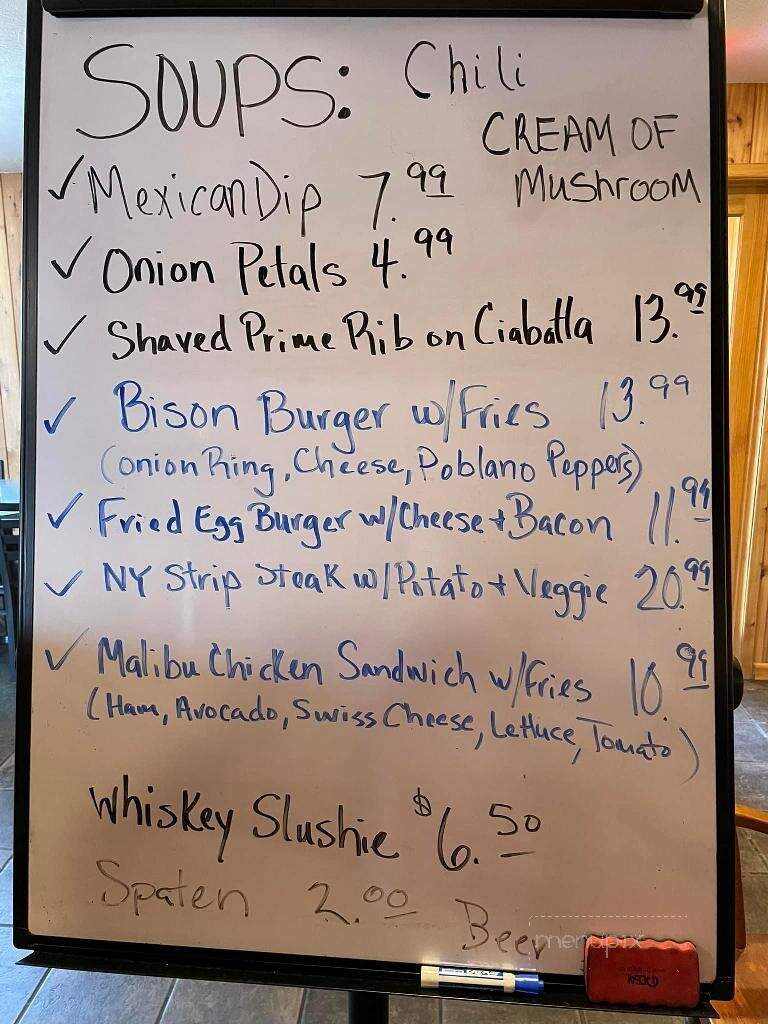 SOUPS: Chili
CREAM OF
MushrooM
✓ Mexican Dip 7.99
✓ Onion Petals 4.99
✓ Shaved Prime Rib on Ciabatta 13.99
✓ Bison Burger w/Fries 13.99
(Onion Ring, Cheese, Poblano Peppers)
✓ Fried Egg Burger w/Cheese + Bacon 11.99
✓ NY Strip Steak w/Potato + Veggie 20.99
✓ Malibu Chicken Sandwich w/Fries 10.99
(Ham, Avocado, Swiss Cheese, Lettuce, Tomato)
Whiskey Slushie $6.50
Spaten 2.00 Beer
menupix